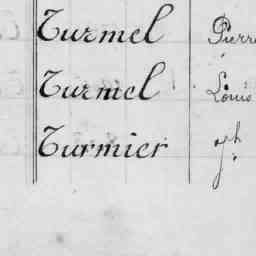 Turmel Pierre
Turmel Louis
Turmier jh